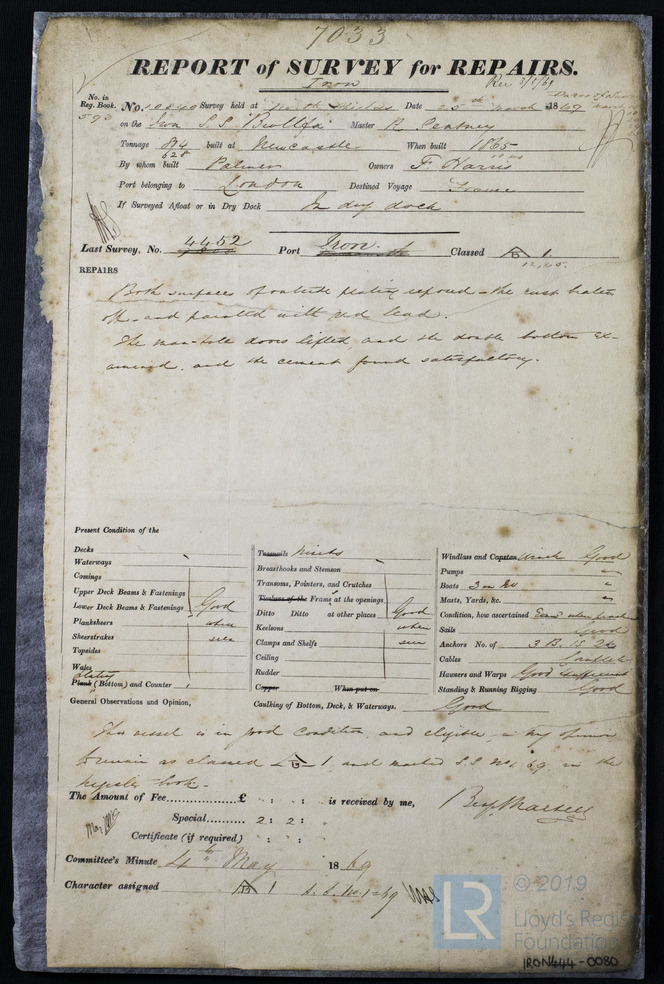 7033
REPORT of SURVEY for REPAIRS.
Iron
No. in
Reg. Book.
593
No. Survey held at Date 25th March 1869
on the Iron S.S. Master R.
Tonnage 814 built at Newcastle When built 1865
628
By whom built Palmer Owners F Harris
Port belonging to London Destined Voyage France
If Surveyed Afloat or in Dry Dock In dry dock
Last Survey, No. 4452 Port Iron. Classed A 1.
REPAIRS
Both surfaces of outside plating exposed - the rust beaten
off - and painted with red lead.
The man-hole doors lifted and the double bottom ex-
amined, and the cement found satisfactory.
Present Condition of the
Decks
Waterways
Comings
Upper Deck Beams & Fastenings
Lower Deck Beams & Fastenings Good
Planksheers when
Sheerstrakes seen
Topsides
Wales
Plating
Plank (Bottom) and Counter
Treenails Rivets
Breasthooks and Stemson
Transoms, Pointers, and Crutches
Timbers of the Frame at the openings
Ditto Ditto at other places Good
Keelsons when
Clamps and Shelfs seen
Ceiling
Rudder
Copper When put on
Caulking of Bottom, Deck, & Waterways. Good
Windlass and Capstan Winch Good
Pumps "
Boats 3 in No "
Masts, Yards, &c. "
Condition, how ascertained
Sails Good
Anchors No. of 3 B. 1 S. 2 K
Cables Complete
Hawsers and Warps Good Sufficient
Standing & Running Rigging Good
General Observations and Opinion,
This vessel is in good condition, and eligible, in my opinion
to remain as classed A 1, and marked S.S. No. 1. 69 in the
register book.
The Amount of Fee............£ : : is received by me,
Special...... 2: 2:
Certificate (if required) : :
Benj. Martell
Committee's Minute 4th May 1869
Character assigned A 1 S.S. No. 1-69
© 2019
LR
Lloyd's Register
Foundation
IRON444-0080